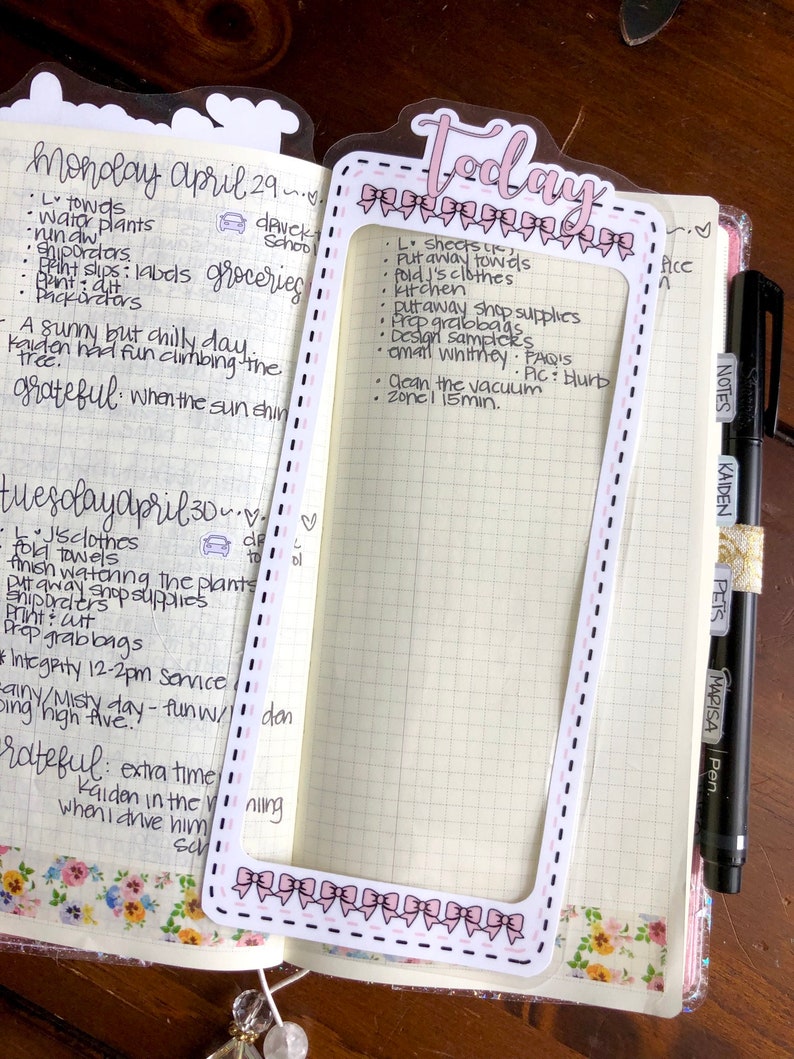 monday april 29
• L ♥ towels
• water plants
• run dw
• ship orders
• Print slips : labels
• Print : cut
• Pack orders
drive
school
groceries
A sunny but chilly day
Kaiden had fun climbing the
tree.
grateful: when the sun shin
tuesday april 30
• L ♥ J's clothes
• fold towels
finish watering the plants
put away shop supplies
ship orders
print : cut
Prep grab bags
* Integrity 12-2pm service
Rainy/Misty day - fun w/
high five.
grateful: extra time
Kaiden in the
when I drive him
today
• L ♥ sheets
• Put away towels
• fold J's clothes
• kitchen
• put away shop supplies
• Prep grab bags
• Design samplers
• email whitney • FAQ's
• Pic : blurb
• Clean the vacuum
• Zone 1 15 min.
NOTES
KAIDEN
PETS
MARISA
Pen.